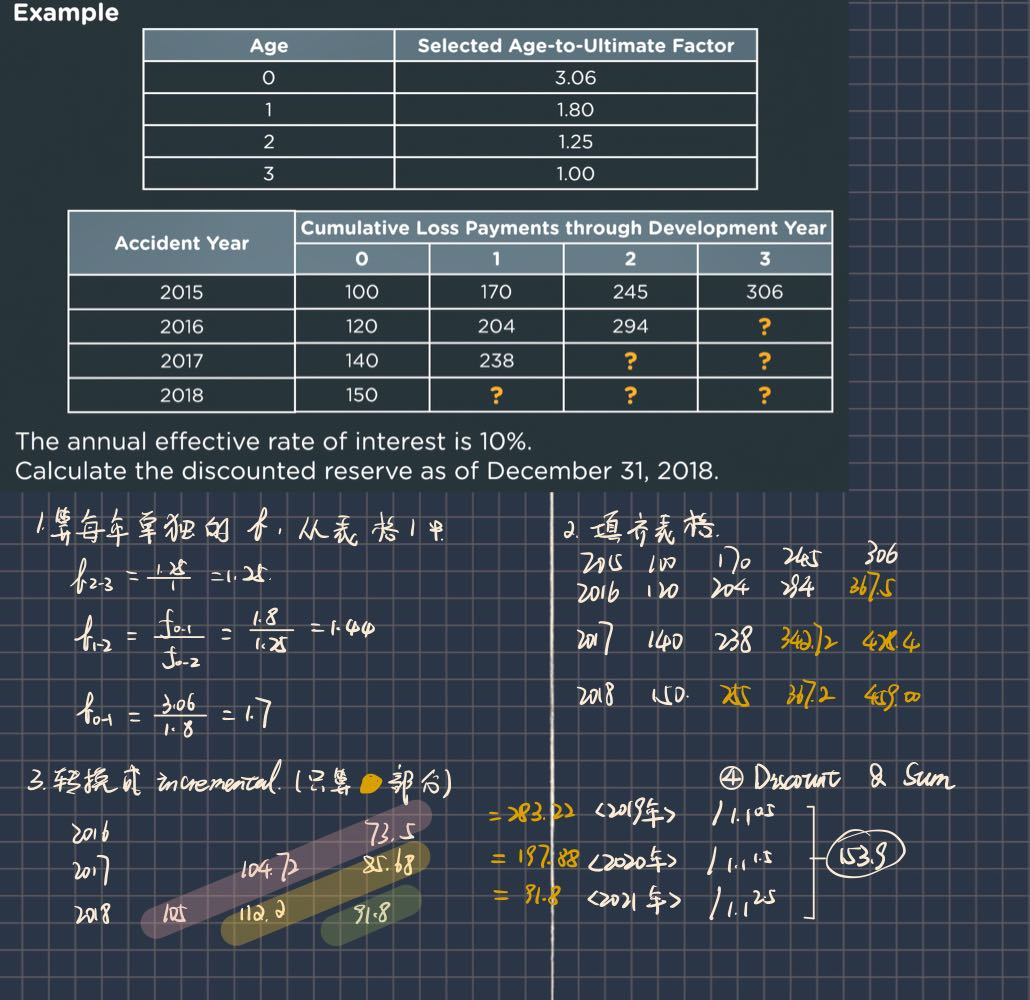 Example
Age Selected Age-to-Ultimate Factor
0 3.06
1 1.80
2 1.25
3 1.00
Accident Year Cumulative Loss Payments through Development Year
0 1 2 3
2015 100 170 245 306
2016 120 204 294 ?
2017 140 238 ? ?
2018 150 ? ? ?
The annual effective rate of interest is 10%.
Calculate the discounted reserve as of December 31, 2018.
1.算每年单独的 f, 从表格1中.
f2-3 = 1.25/1 = 1.25.
f1-2 = f0-1/f0-2 = 1.8/1.25 = 1.44
f0-1 = 3.06/1.8 = 1.7
2. 填齐表格.
2015 100 170 245 306
2016 120 204 294 367.5
2017 140 238 342.72 428.4
2018 150. 255 367.2 459.00
3.转换成 incremental. (只算 部分)
2016 73.5
2017 104.72 85.68
2018 105 112.2 91.8
④ Discount & Sum
= 283.22 <2019年> / 1.1^0.5
= 197.88 <2020年> / 1.1^1.5
= 91.8 <2021年> / 1.1^2.5